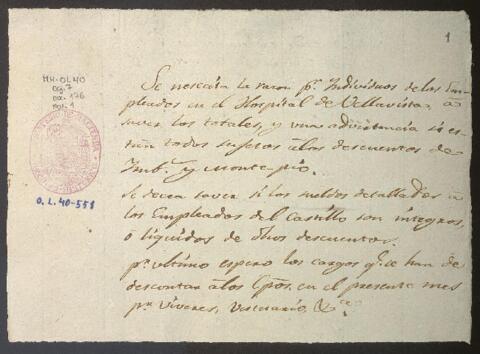 1
MH-OL40
Cg. 7
Do. 176
Fol. 1
O.L. 40-551
Se necesita la razon pr. Individuos de los Em-
pleados en el Hospital de Vellavista, a
saver los totales, y una advertencia si es-
tan todos sujetos álos descuentos de
Imbs. y Monte-pio.
Se decea saver si los sueldos detallados á
los Empleados del Castillo son integros,
ó liquidos de dhos descuentos.
pr. ultimo espero los cargos qe. se han de
descontar álos Cpos. en el presente mes
pr. viveres, vestuario, &ce